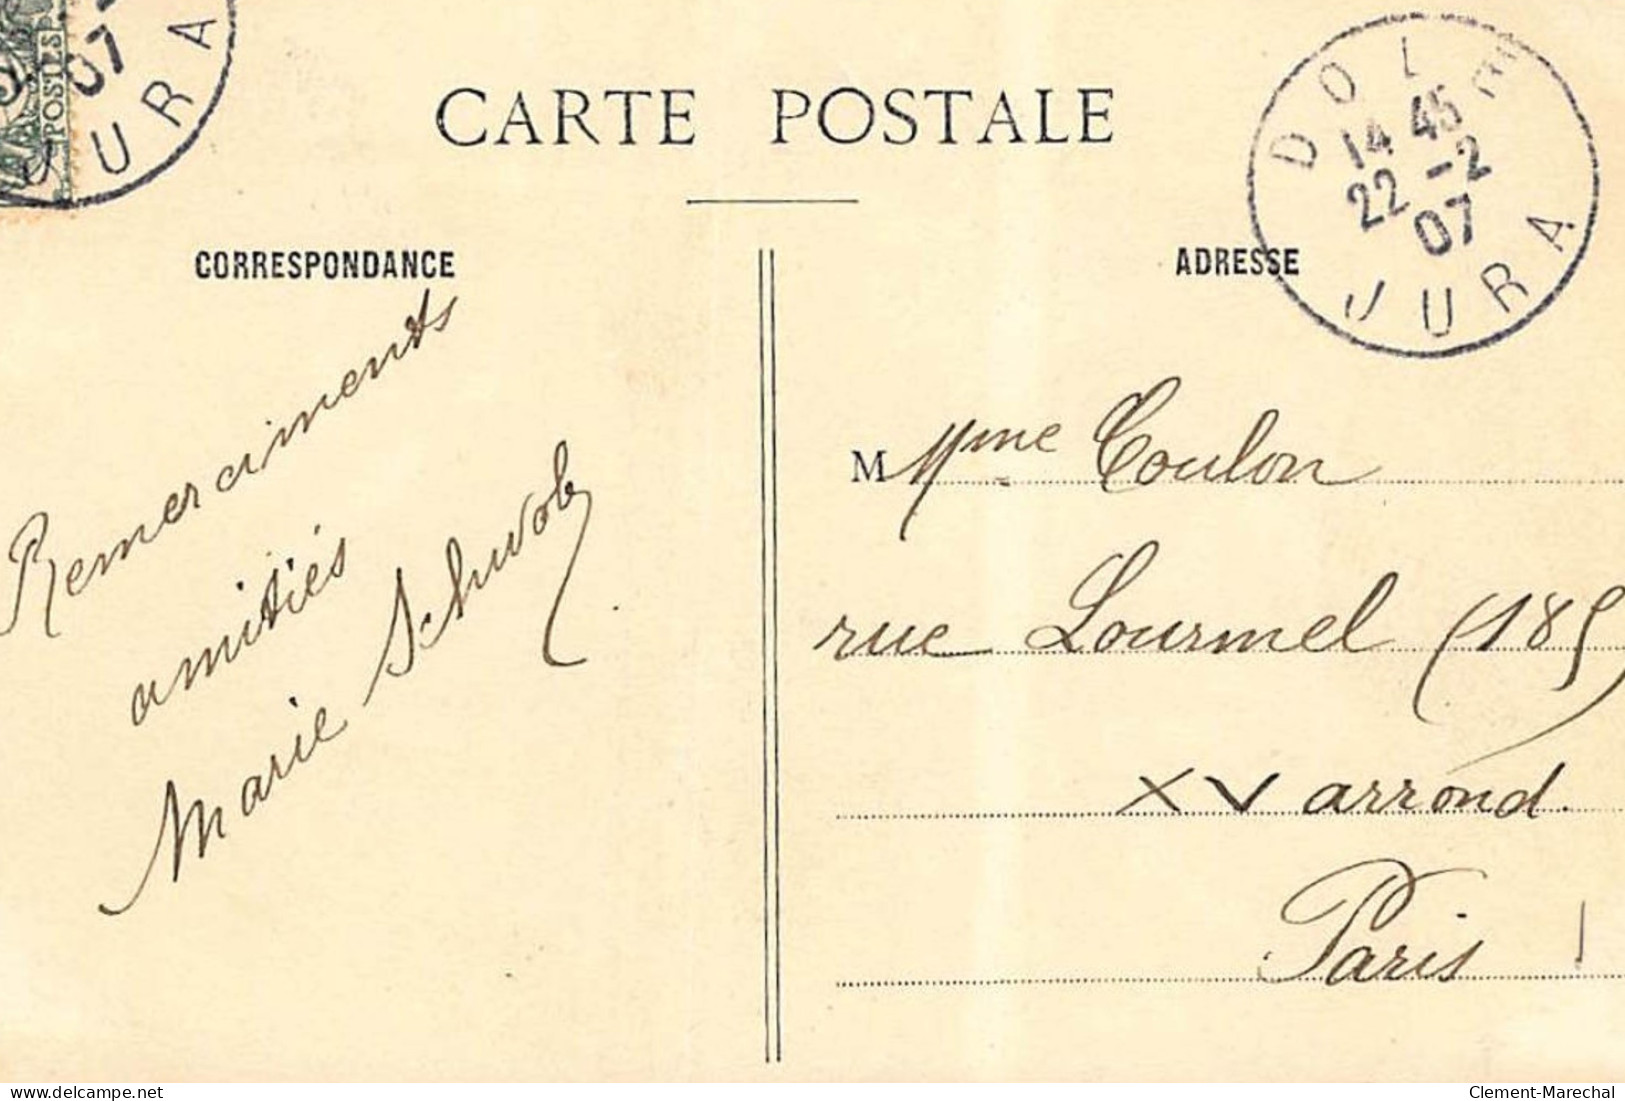 POSTES
07
JURA
CARTE POSTALE
DOLE
14 45
22 -2
07
JURA
CORRESPONDANCE
ADRESSE
Remerciments
amitiés
Marie Schwob
M Mme Coulon
rue Lourmel (185)
XV arrond.
Paris
delcampe.net
Clement-Marechal